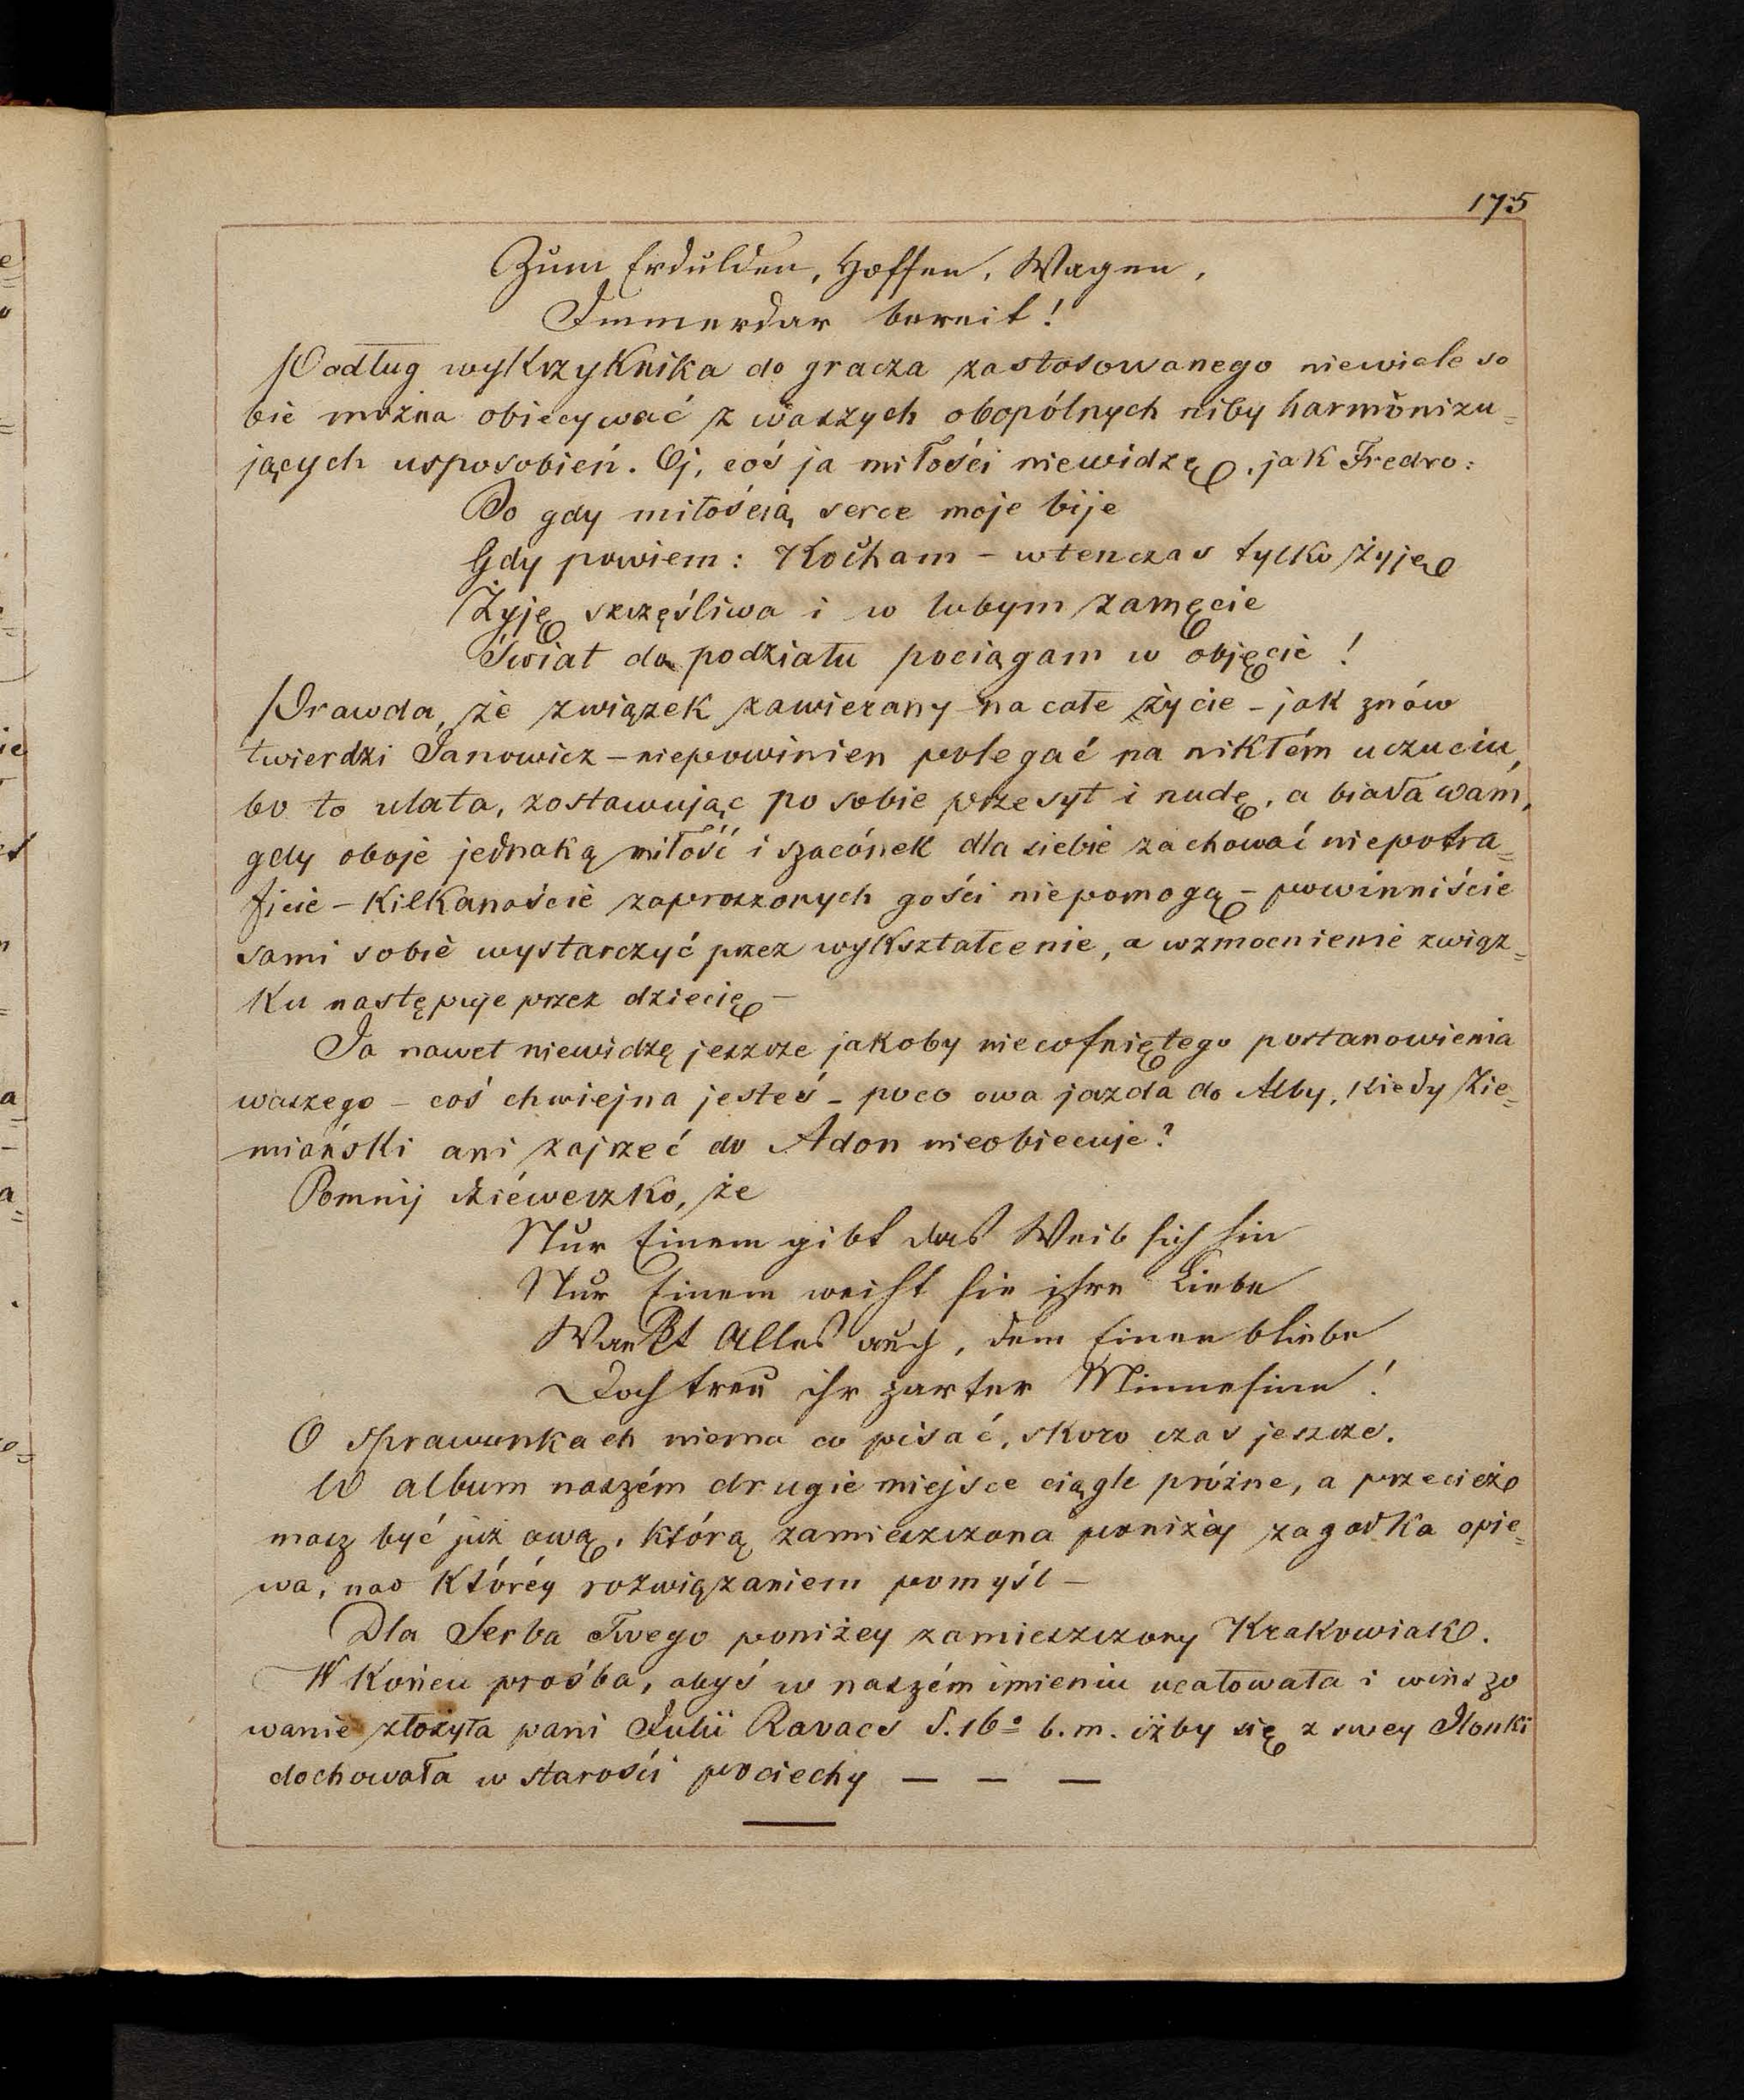 175
Zum Erdulden, Hoffen, Wagen,
Immerdar bereit!
Podług wykrzyknika do gracza zastosowanego niewiele so
bie można obiecywać z waszych obopólnych niby harmonizu=
jących usposobień. Oj, coś ja miłości niewidzę, jak Fredro:
Bo gdy miłością serce moje bije
Gdy powiem: Kocham – wtenczas tylko żyję
Żyję szczęśliwa i w lubym zamęcie
Świat do podziału pociągam w objęcie!
Prawda, że związek zawierany na całe życie – jak znów
twierdzi Janowicz – niepowinien polegać na nikłém uczuciu,
bo to ulata, zostawując po sobie przesyt i nudę, a biada wam,
gdy oboje jednaką miłość i szacónek dla siebie zachować niepotra=
ficie – kilkanaście zaproszonych gości niepomogą – powinniście
sami sobie wystarczyć przez wykształcenie, a wzmocnienie związ=
ku następuje przez dziecię –
Ja nawet niewidzę jeszcze jakoby niecofniętego postanowienia
waszego – coś chwiejna jesteś – poco owa jazda do Alby, kiedy Zie=
miański ani zajrzeć do Adon nieobiecuje?
Pomnij dziéweczko, że
Nur Einem gibt das Weib sich hin
Nur Einem weiht sie ihre Liebe
Wankt Alles auch, dem Einen bliebe
Doch treu ihr zarter Minnesinn!
O sprawunkach niema co pisać, skoro czas jeszcze.
W album naszém drugie miejsce ciągle próżne, a przecież
masz być już ową, którą zamieszczona poniżéj zagadka opie=
wa, nad któréj rozwiązaniem pomyśl –
Dla Serba Twego poniżey zamieszczony Krakowiak.
W końcu prośba, abyś w naszém imieniu ucałowała i winszo
wanie złożyła pani Julii Ravacs d. 16º b.m. iżby się z swey Ilonki
dochowała w starości pociechy — — —